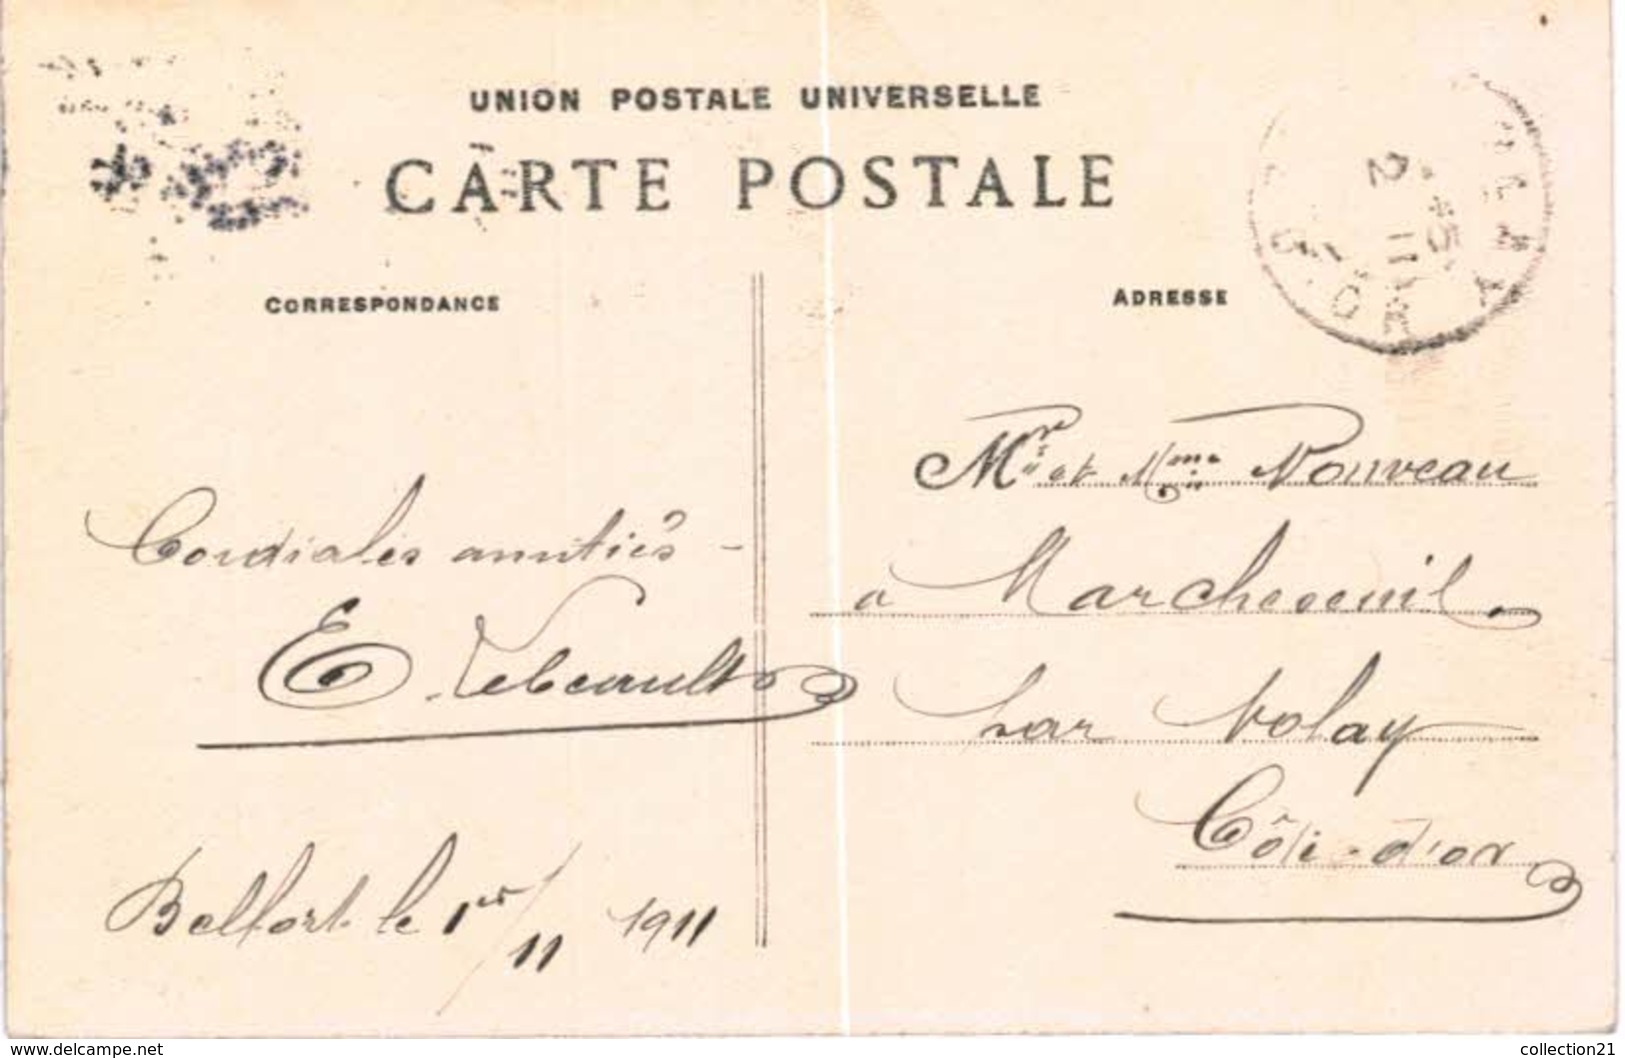 UNION POSTALE UNIVERSELLE
CARTE POSTALE
CORRESPONDANCE
ADRESSE
Cordiales amitiés -
E.
Belfort le 1er/11 1911
Mr et Mme Nouveau
a Marcheseuil
par Volay
Côte-d'or
www.delcampe.net
collection21